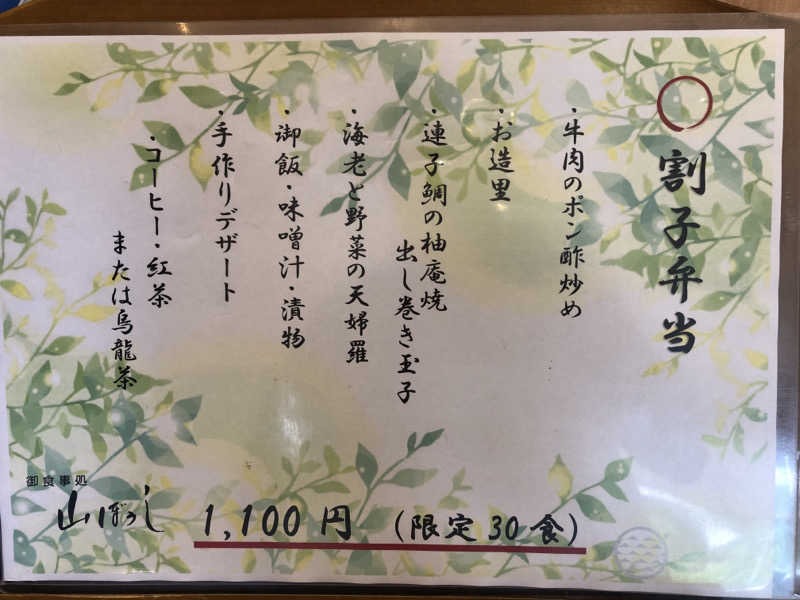 割子弁当
・牛肉のポン酢炒め
・お造里
・連子鯛の柚庵焼
出し巻き玉子
・海老と野菜の天婦羅
・御飯・味噌汁・漬物
・手作りデザート
・コーヒー・紅茶
または烏龍茶
御食事処
山ぼうし
1,100円 (限定30食)